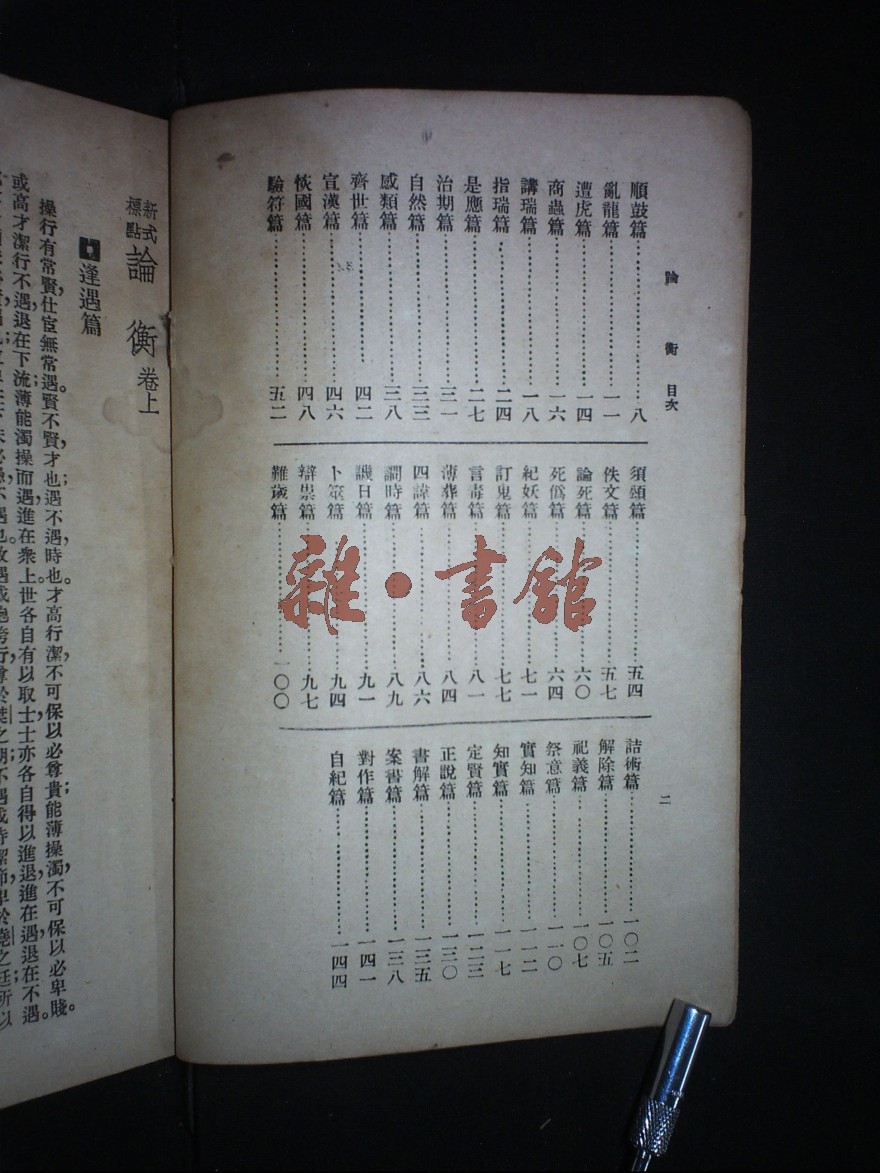 論衡 目次
二
順鼓篇……………………八
亂龍篇……………………一一
遭虎篇……………………一四
商蟲篇……………………一六
講瑞篇……………………一八
指瑞篇……………………二四
是應篇……………………二七
治期篇……………………三一
自然篇……………………三三
感類篇……………………三八
齊世篇……………………四二
宣漢篇……………………四六
恢國篇……………………四八
驗符篇……………………五二
須頌篇……………………五四
佚文篇……………………五七
論死篇……………………六〇
死僞篇……………………六四
紀妖篇……………………七一
訂鬼篇……………………七七
言毒篇……………………八一
薄葬篇……………………八四
四諱篇……………………八六
䦨時篇……………………八九
譏日篇……………………九一
卜筮篇……………………九四
辯祟篇……………………九七
難歲篇……………………一〇〇
詰術篇……………………一〇二
解除篇……………………一〇五
祀義篇……………………一〇七
祭意篇……………………一一〇
實知篇……………………一一二
知實篇……………………一一七
定賢篇……………………一二三
正說篇……………………一三〇
書解篇……………………一三五
案書篇……………………一三八
對作篇……………………一四一
自紀篇……………………一四四
雜·書館
新式標點 論衡 卷上
逢遇篇
操行有常賢,仕宦無常遇。賢不賢,才也;遇不遇,時也。才高行潔,不可保以必尊貴;能薄操濁,不可保以必卑賤。
或高才潔行,不遇退在下流;薄能濁操而遇,進在衆上。世各自有以取士,士亦各自得以進。進在遇,退在不遇。